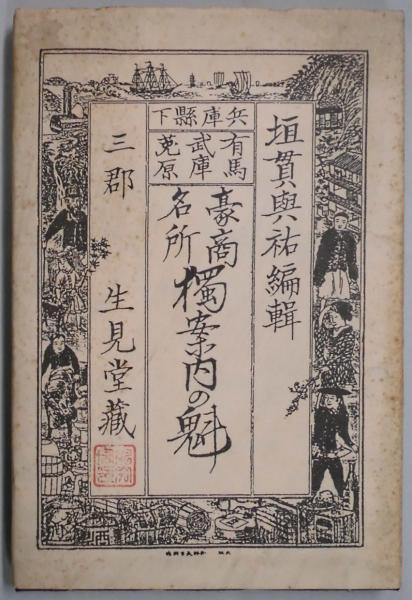 垣貫與祐編輯
兵庫縣下
有馬
武庫
菟原
豪商
名所
獨案内の魁
三郡 生見堂藏